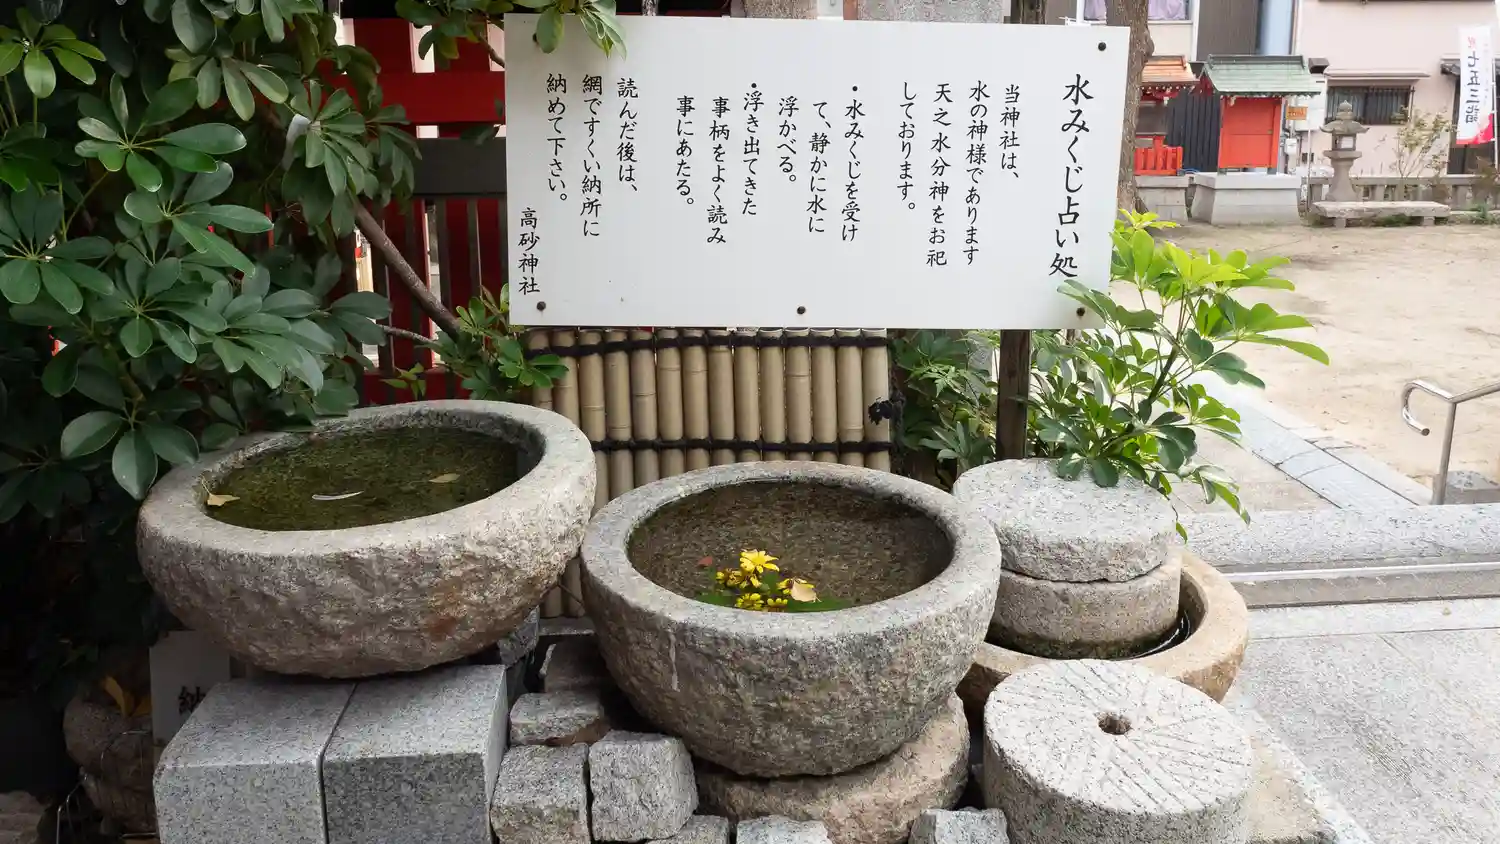 水みくじ占い処
当神社は、
水の神様であります
天之水分神をお祀
しております。
・水みくじを受け
て、静かに水に
浮かべる。
・浮き出てきた
事柄をよく読み
事にあたる。
読んだ後は、
網ですくい納所に
納めて下さい。
高砂神社
七五三詣